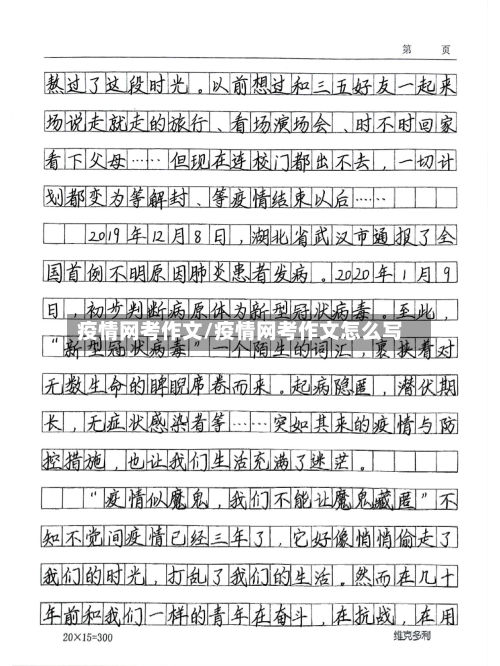 第 页
熬过了这段时光。以前想过和三五好友一起来
场说走就走的旅行、看场演场会、时不时回家
看下父母……但现在连校门都出不去，一切计
划都变为等解封、等疫情结束以后……
2019年12月8日，湖北省武汉市通报了全
国首例不明原因肺炎患者发病。2020年1月9
日，初步判断病原体为新型冠状病毒。至此，
疫情网考作文/疫情网考作文怎么写
“新型冠状病毒”一个陌生的词汇，裹挟着对
无数生命的睥睨席卷而来。起病隐匿，潜伏期
长，无症状感染者等……突如其来的疫情与防
控措施，也让我们生活充满了迷茫。
“疫情似魔鬼，我们不能让魔鬼藏匿”不
知不觉间疫情已经三年了，它好像悄悄偷走了
我们的时光，打乱了我们的生活。然而在几十
年前和我们一样的青年在奋斗，在抗战，在用
20×15=300 维克多利